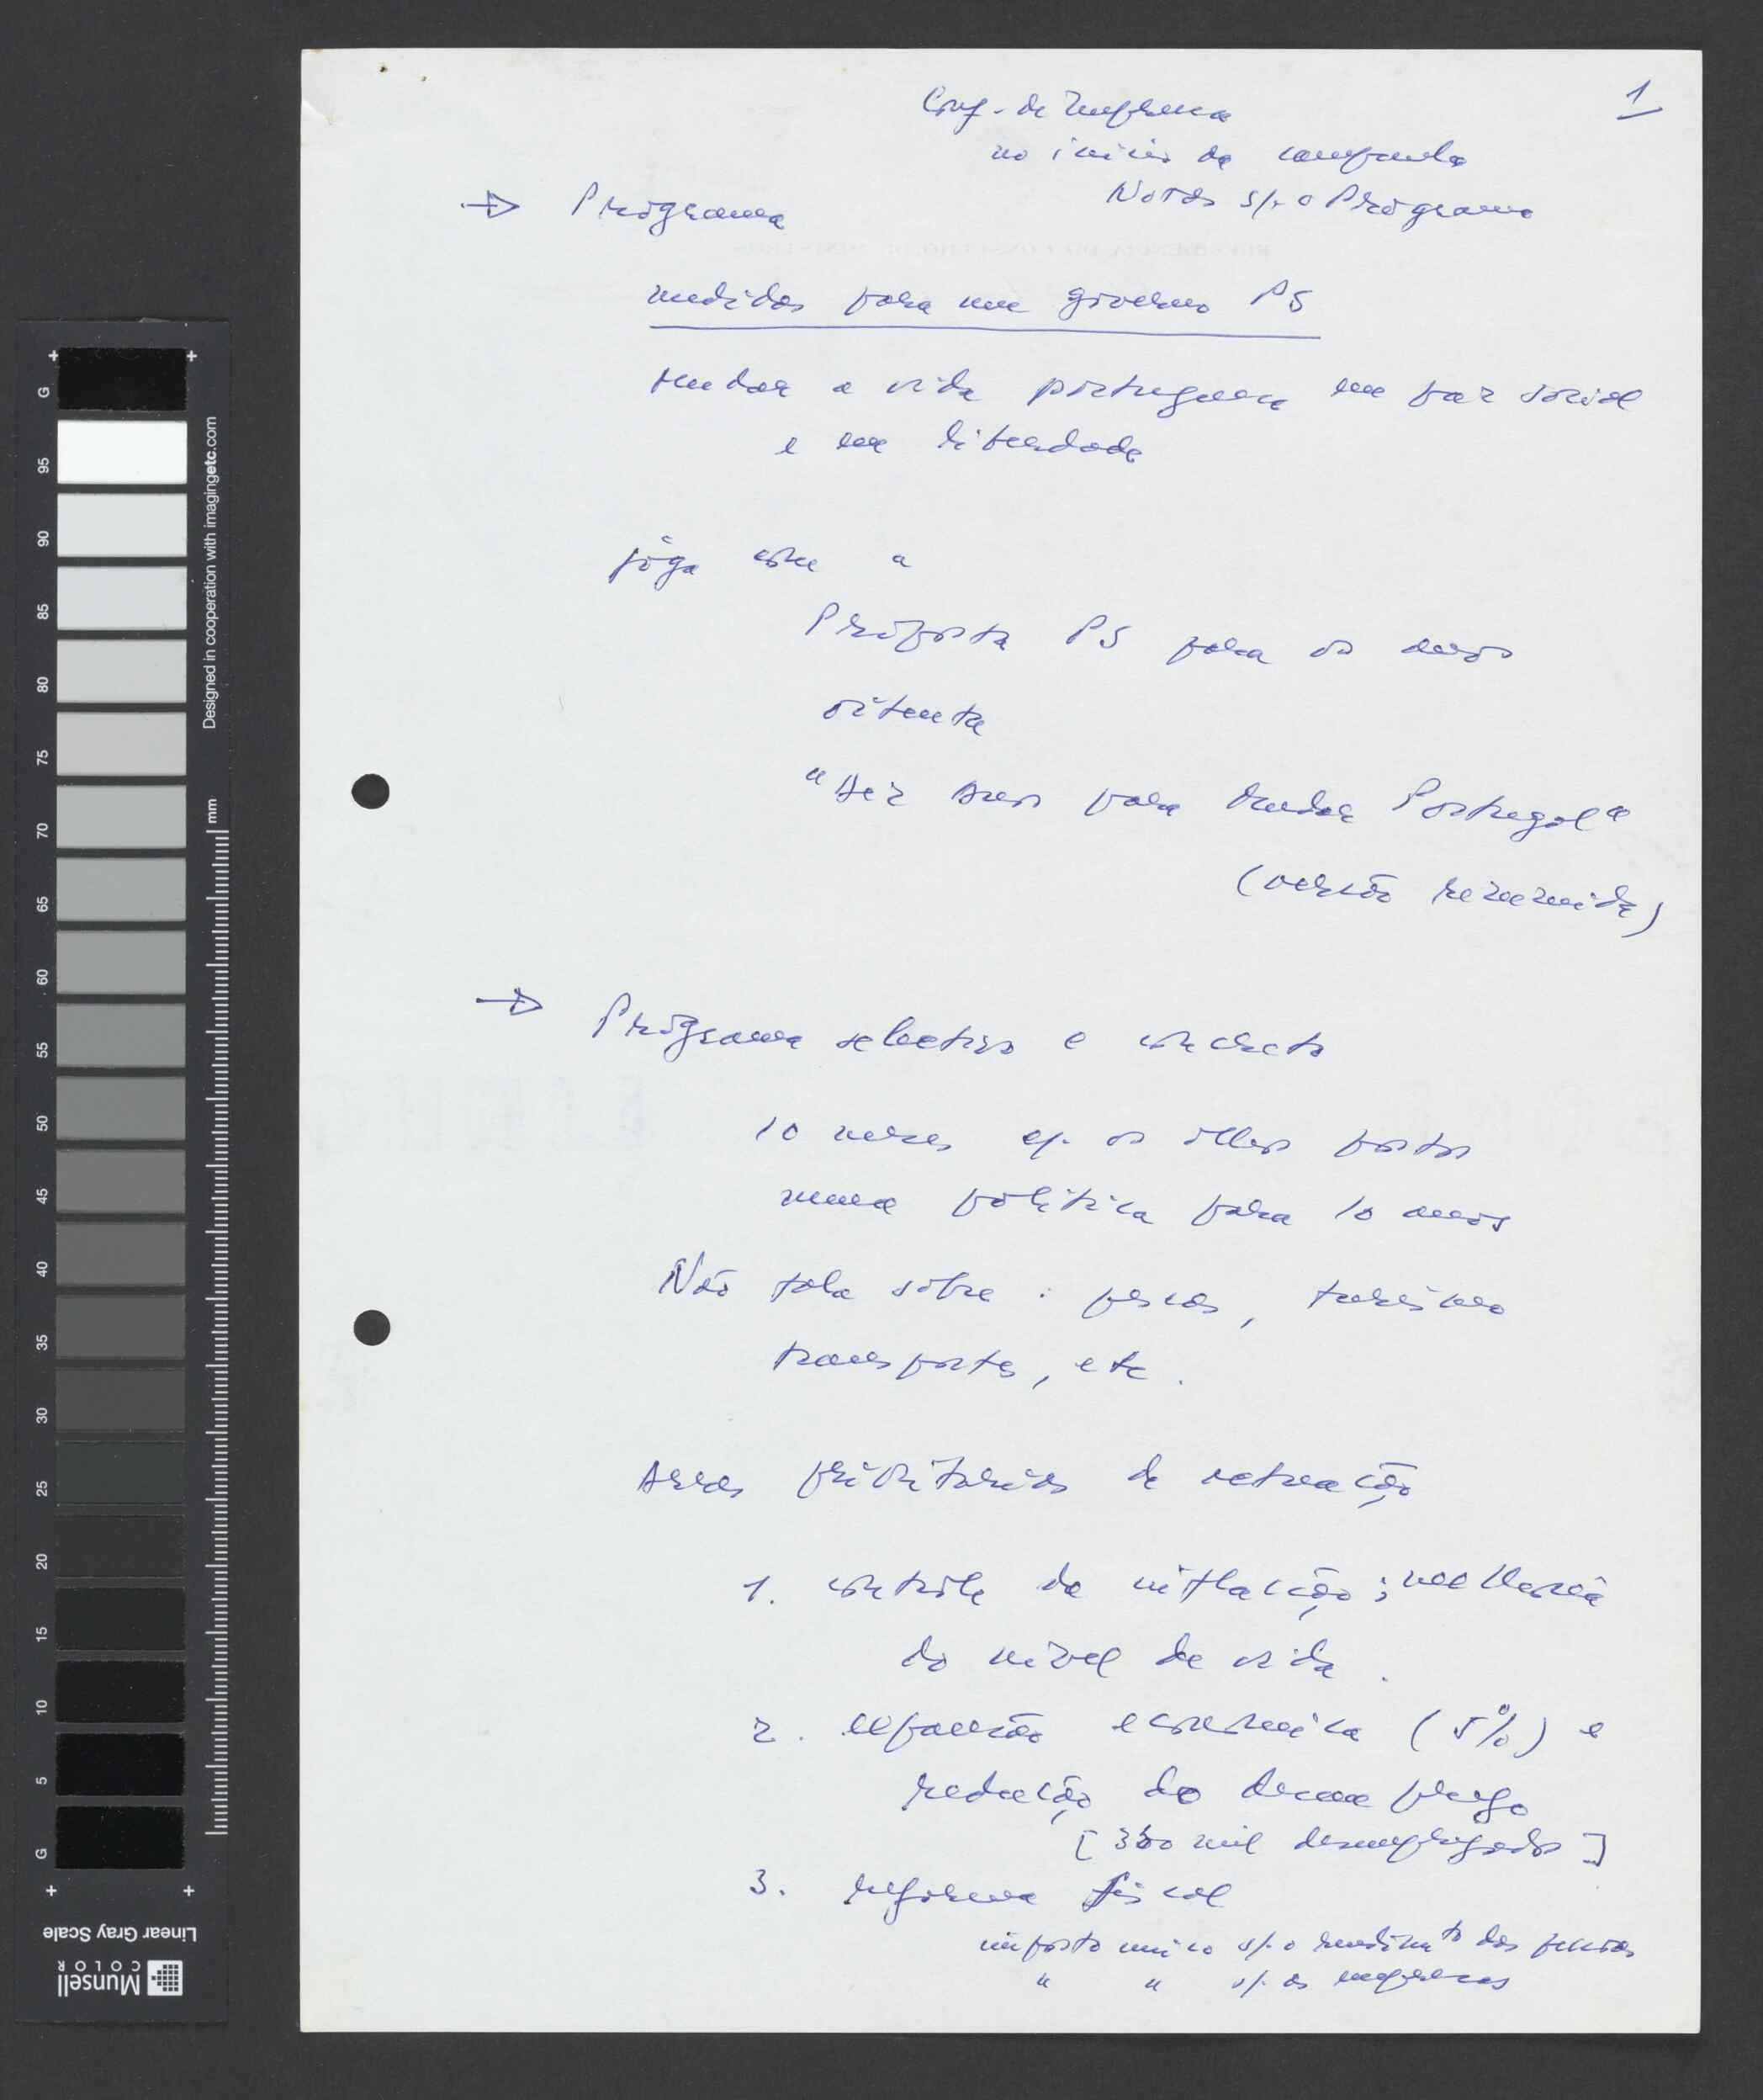 1
Conf. de Imprensa
no início da campanha
Notas s/. o Programa
→ Programa
medidas para um governo PS
mudar a vida portuguesa em paz social
e em liberdade
joga com a
Proposta PS para os anos
oitenta
"Dez anos para mudar Portugal"
(versão resumida)
→ Programa selectivo e concreto
10 meses c/. os olhos postos
numa política para 10 anos
Não fala sobre: pescas, turismo
transportes, etc.
Areas prioritárias de actuação
1. controle da inflação; melhoria
do nível de vida.
2. expansão económica (5%) e
redução do desemprego
[350 mil desempregados]
3. reforma fiscal
imposto único s/. o rendimto das pessoas
" " s/. as empresas
G
95
90
85
80
75
70
65
60
55
50
45
40
35
30
25
20
15
10
5
G
Designed in cooperation with imagingetc.com
mm
Linear Gray Scale
Munsell
COLOR